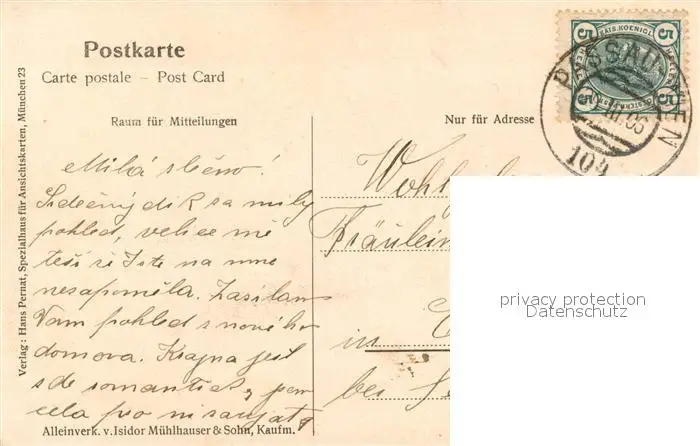 Postkarte
Carte postale – Post Card
Raum für Mitteilungen
Nur für Adresse
KAIS. KOENIGL.
5 5
HELLER HELLER
5 5
PASSAU WIEN
III.06
104
Verlag: Hans Pernat, Spezialhaus für Ansichtskarten, München 23
Milá slečno!
Srdečný dík za milý
pohled, velice mě
těší že Jste na mne
nezapoměla. Zasílám
Vam pohled z nového
domova. Krajna jest
zde romantická,
cela pro
Fräulein
in
bei
Alleinverk. v. Isidor Mühlhauser & Sohn, Kaufm.
privacy protection
Datenschutz